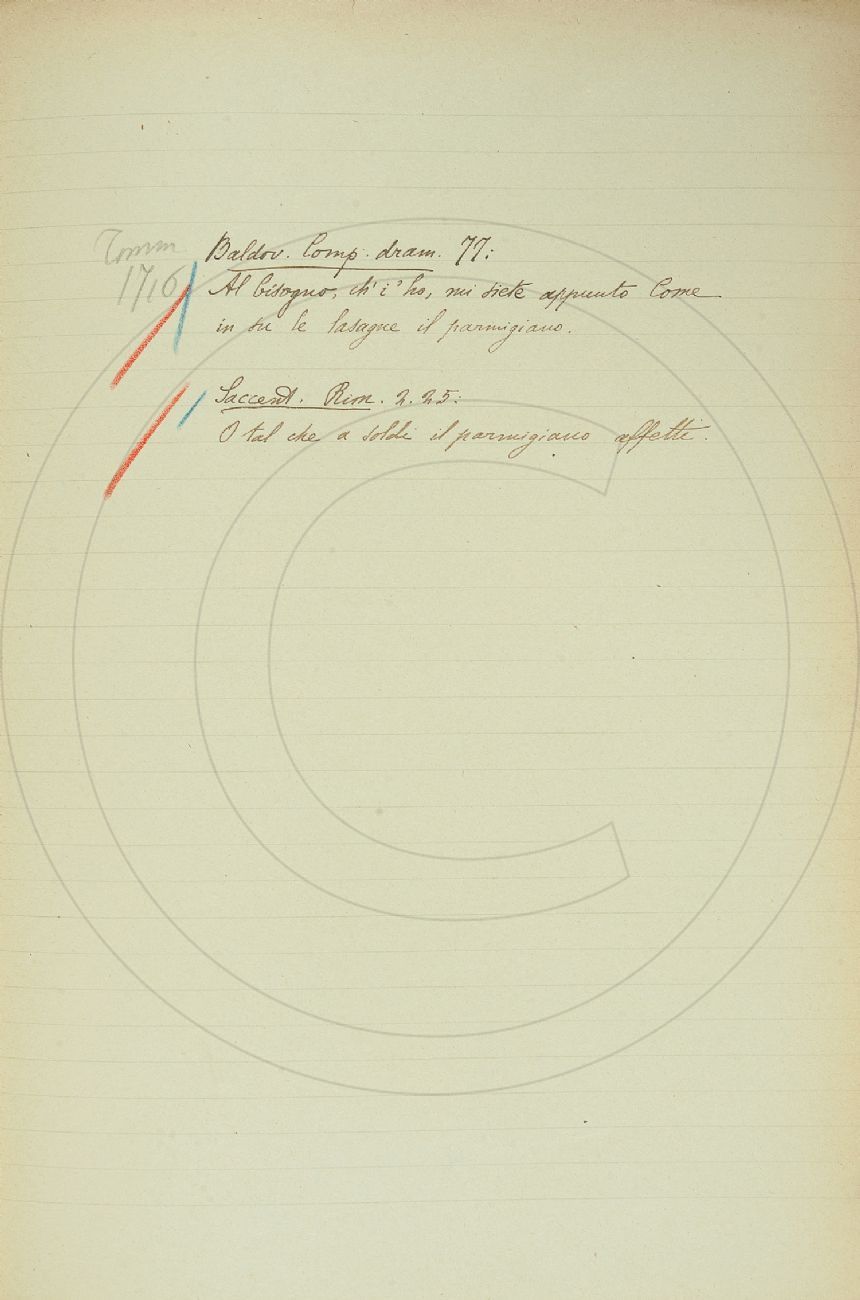 Tomm
1716
Baldov. Comp. dram. 77:
Al bisogno, ch' i' ho, mi siete appunto Come
in su le lasagne il parmigiano.
Saccent. Rim. 2. 25:
O tal che a soldi il parmigiano affetti.